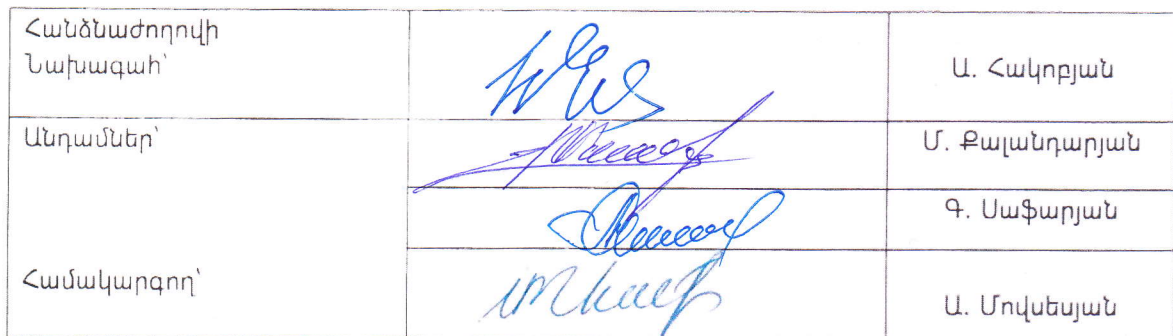 Հանձնաժողովի
Նախագահ՝
Ա. Հակոբյան
Անդամներ՝
Մ. Քալանդարյան
Գ. Սաֆարյան
Համակարգող՝
Ա. Մովսեսյան